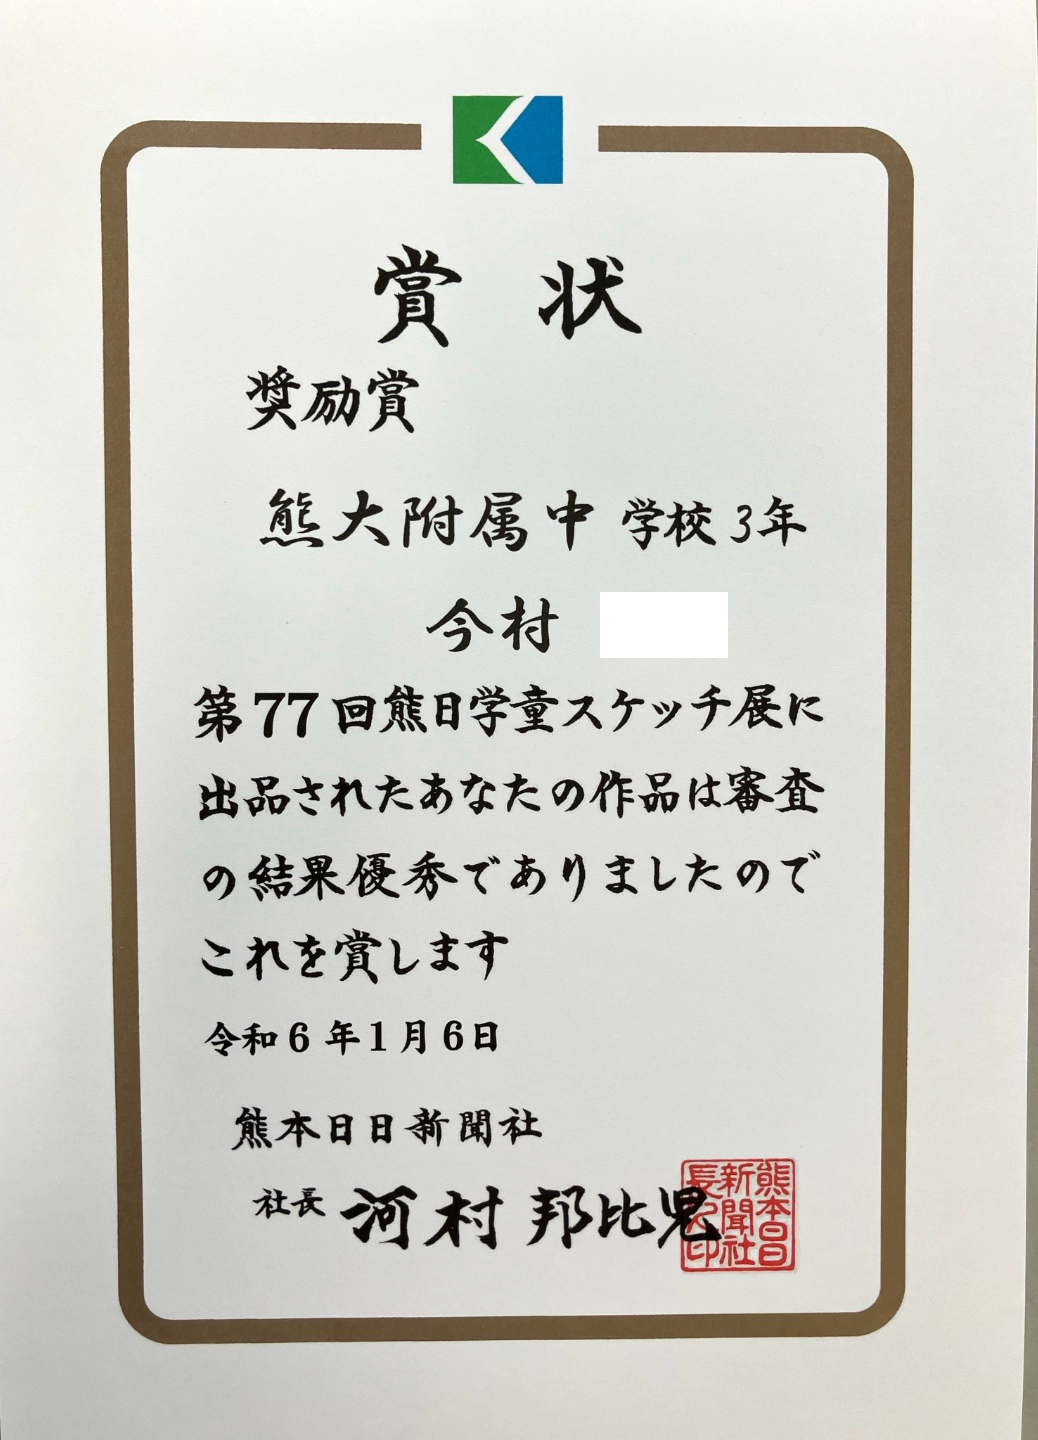 賞状
奨励賞
熊大附属中学校3年
今村
第77回熊日学童スケッチ展に
出品されたあなたの作品は審査
の結果優秀でありましたので
これを賞します
令和6年1月6日
熊本日日新聞社
社長 河村邦比児
熊本日日
新聞社
長之印